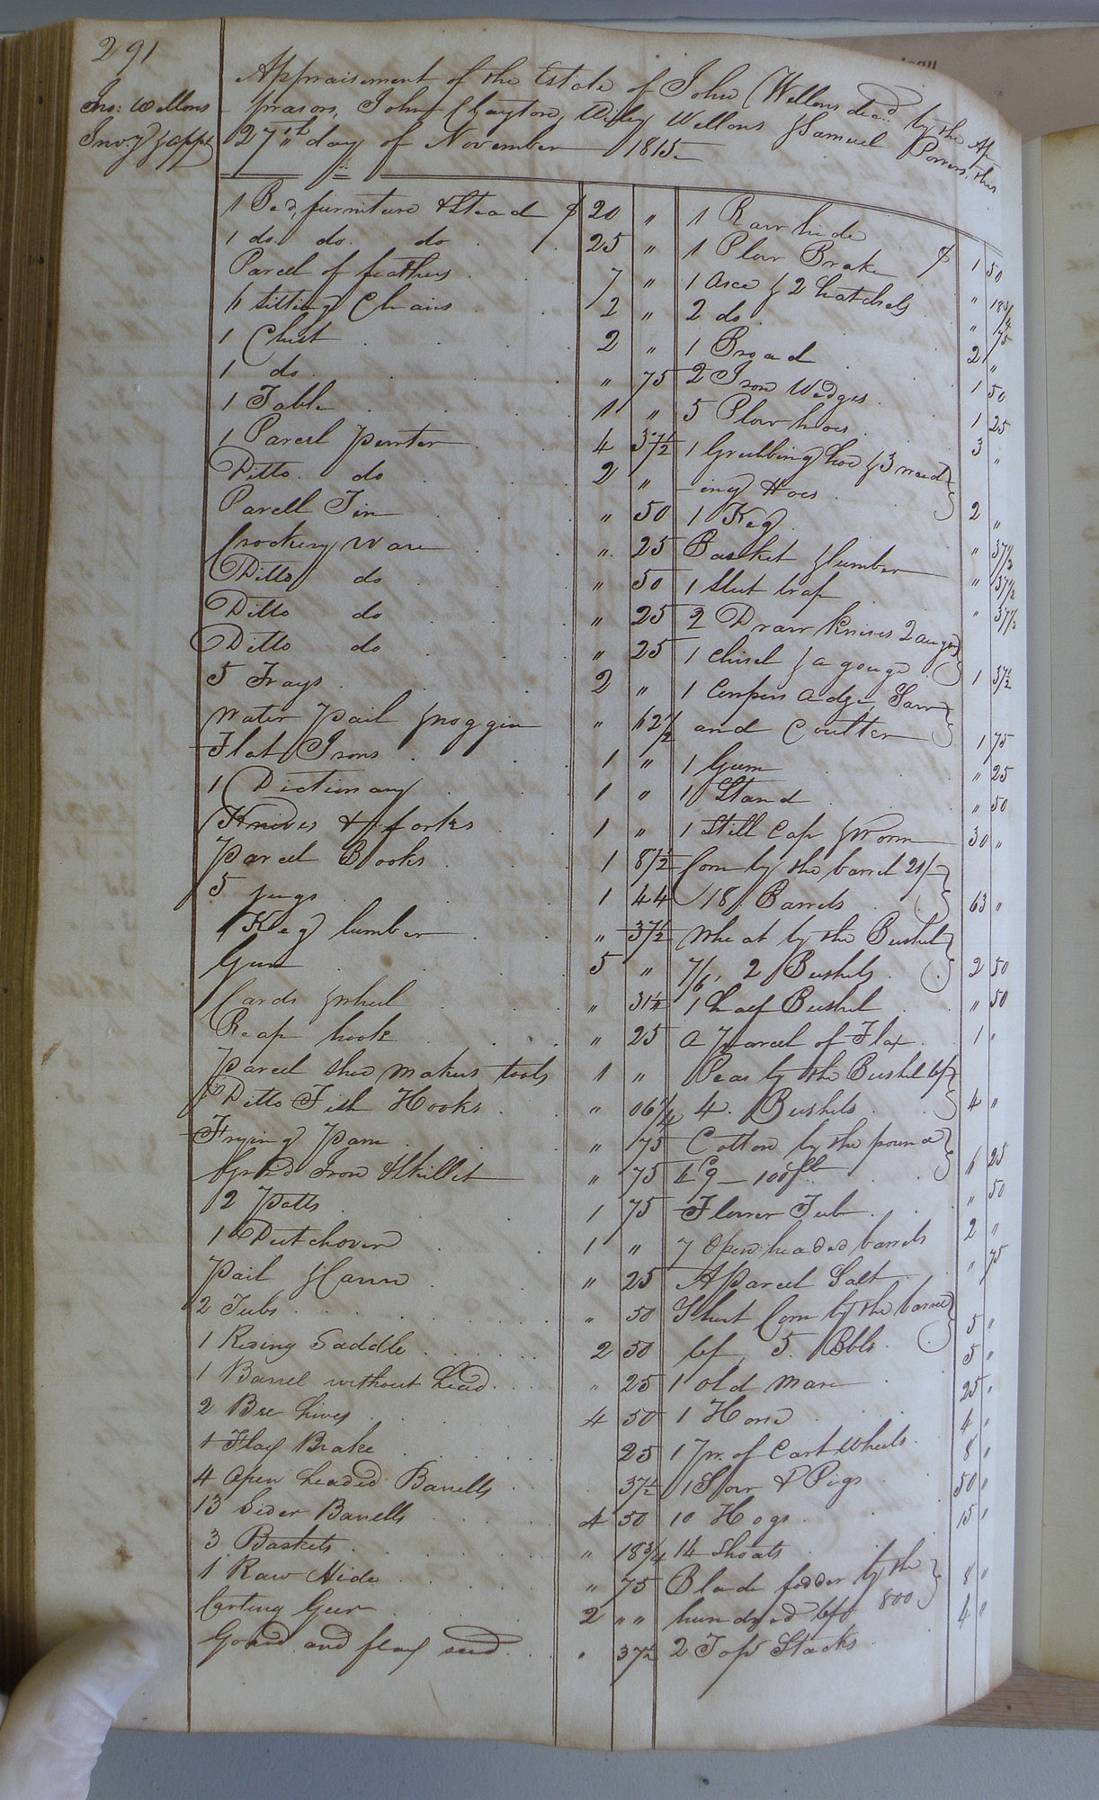 291
Jno: Wellons
Inv.y & appt
Appraisement of the Estate of John Wellons decd. by the Ap-
praisors, John Clayton, Wiley Wellons & Samuel Powers, this
27th day of November 1815
1 Bed, furniture & Stead $ 20 "
1 do. do. do 25 "
Parcel of feathers 7 "
11 sitting Chairs 2 "
1 Chest 2 "
1 do. " 75
1 Table 1 "
1 Parcel pewter 4 37½
Ditto. do 2 "
Parcell Tin " 50
Crockery Ware " 25
Ditto do " 50
Ditto do " 25
Ditto do " 25
5 Trays 2 "
Water pail & noggin " 62½
Flat Irons 1 "
1 Dictionary 1 "
Knives & forks 1 "
Parcel Books 1 8½
5 jugs 1 44
1 Keg lumber " 37½
Gun 5 "
Cards & wheel " 31½
Reap hook " 25
Parcel shoe makers tools 1 "
Ditto Fish Hooks " 06¼
Frying pan " 75
Iron & Skillet " 75
2 Potts 1 75
1 Dutchoven 1 "
Pail & Cann " 25
2 Tubs " 50
1 Riding Saddle 2 50
1 Barrel without head " 25
2 Bee hives 4 50
1 Flax Brake 25
4 Open headed Barrells 37½
13 Sider Barrells 4 50
3 Baskets " 18¾
1 Raw Hide " 75
Carting Gear 2 " "
Gourd and flax seed " 37½
1 Raw hide $ 1 50
1 Plow Brake " 18¾
1 Axe & 2 hatchels " 75
2 do. 2 "
1 Broad 1 50
2 Iron Wedges 1 25
5 Plow hoes 3 "
1 Grubbing hoe & 3 weed-
ing Hoes 2 "
1 Keg " 37½
Basket & lumber " 37½
1 Steel trap " 37½
2 Draw Knives 2 augers
1 chisel & a gouge 1 37½
1 Coopers adze, Saw
and Coulter 1 75
1 Gum " 25
1 Stand " 50
1 Still Cap & Worm 30 "
Corn by the barrel 21/-
18 Barrels 63 "
Wheat by the Bushel
7/6, 2 Bushels 2 50
1 half Bushel " 50
a parcel of Flax 1 "
Peas by the Bushel 6/
4. Bushels 4 "
Cotton by the pound
100 lb 6 25
Flower Tub " 50
7 Open headed barrels 2 "
A Parcel Salt " 75
Short Corn by the barrel
6/ 5. Bbls. 5 "
1 old Mare 5 "
1 Horse 25 "
1 pr. of Cart Wheels 4 "
1 Sow & Pigs 8 "
10 Hogs 50 "
14 Shoats 15 "
Blade fodder by the
hundred 6/ 800 8 "
2 Top Stacks 4 "